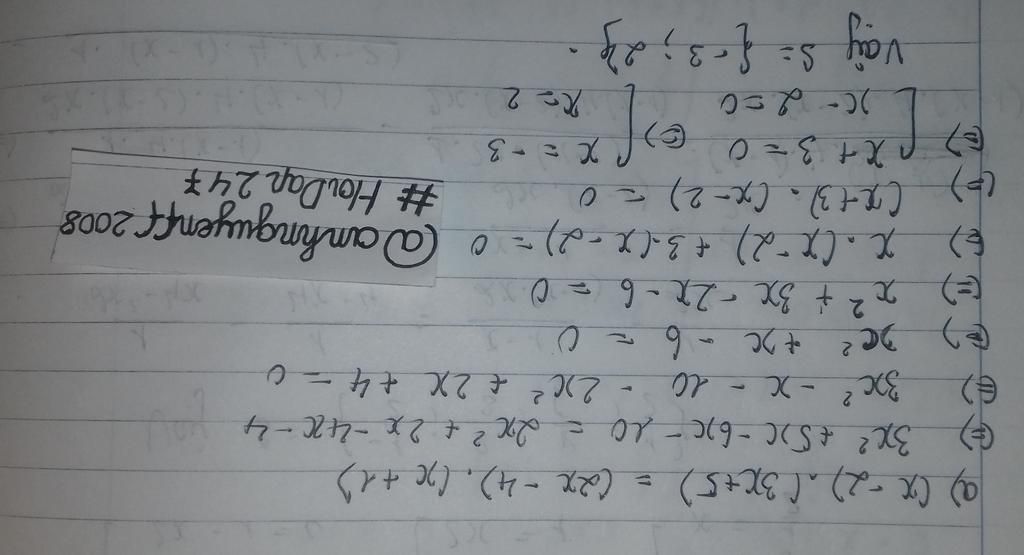 a) (x-2).(3x+5) = (2x-4).(x+1)
(=) 3x² + 5x - 6x - 10 = 2x² + 2x - 4x - 4
(=) 3x² - x - 10 - 2x² + 2x + 4 = 0
(=) x² + x - 6 = 0
(=) x² + 3x - 2x - 6 = 0
(=) x.(x-2) + 3.(x-2) = 0
(=) (x+3).(x-2) = 0
(=) [ x + 3 = 0 (=) [ x = -3
x - 2 = 0 x = 2
Vậy S = {-3; 2}.
@anhnguyenff2008
# HoiDap247